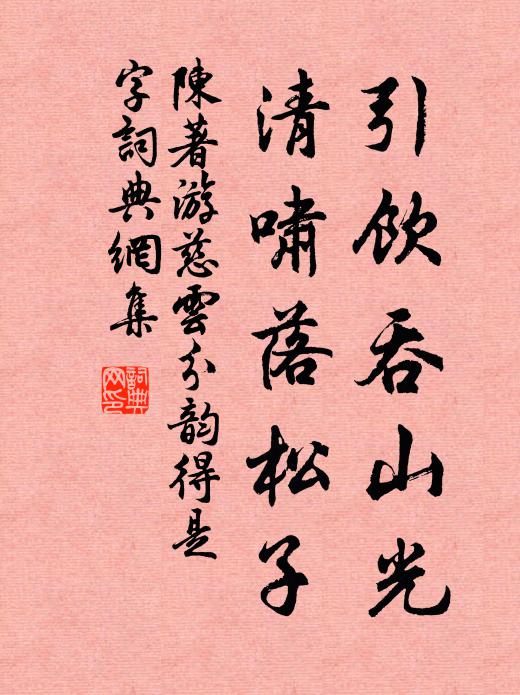 引飲吞山光
清嘯落松子
陳著游慈雲分韵得是
字詞典網集
詞典網印